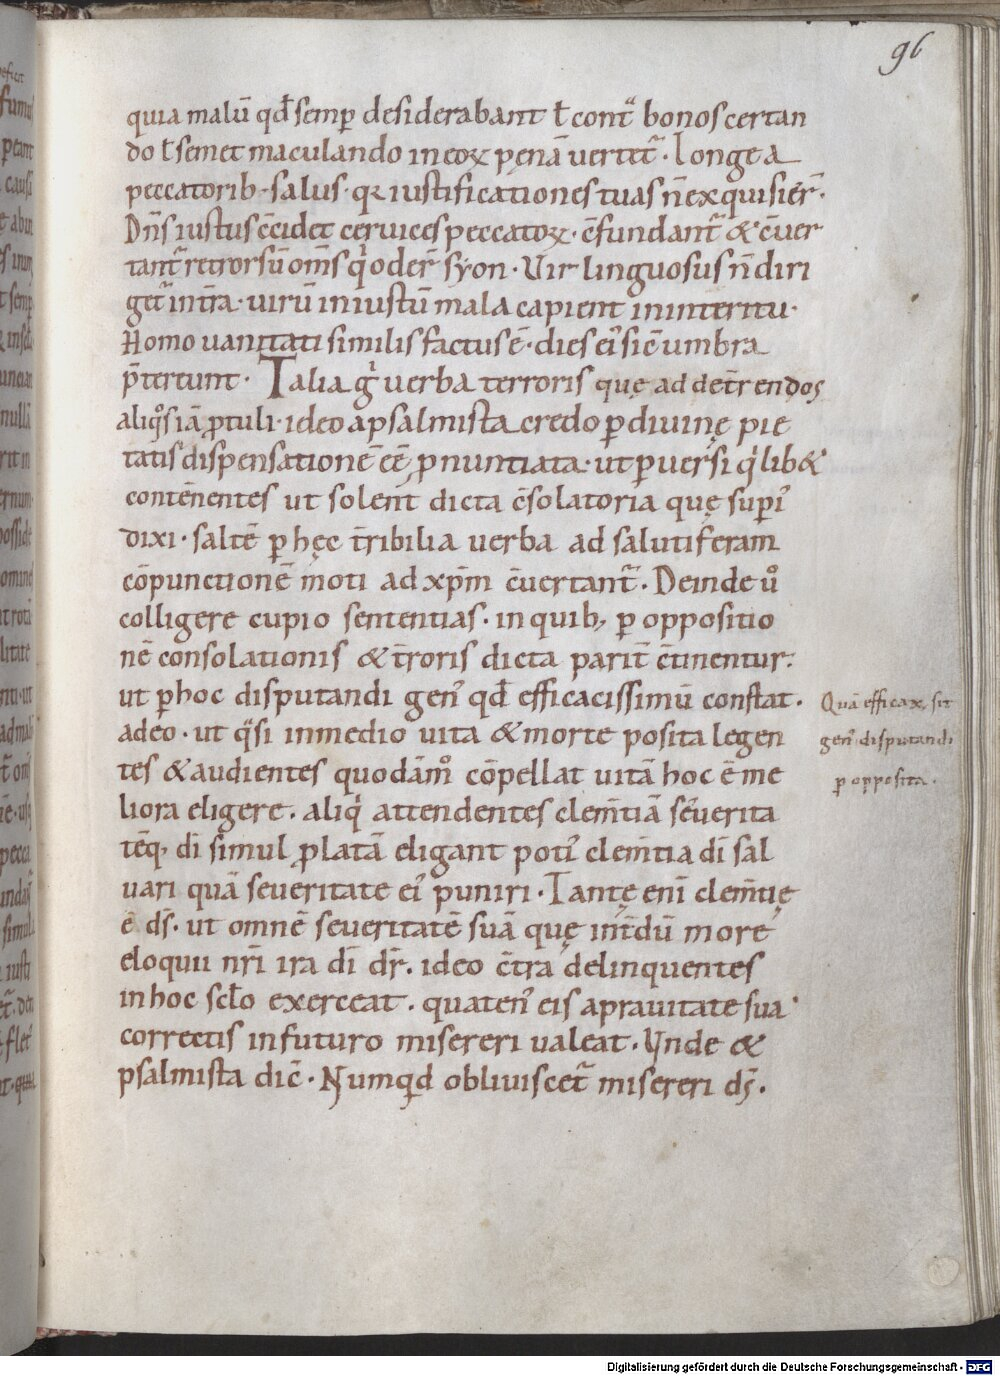 96
quia malū qđ semp̲ desiderabant ł cont̃ bonos certan
do ł semet maculando in eoꝝ pęnā uertet̃. Longe a
peccatorib; salus. qꝛ iustificationes tuas n̄ exquisier̃.
Dn̄s iustus c̄cidet ceruices peccatoꝝ. c̄fundant̃ & c̄uer
tant̃ retrorsū om̄s qͥ oder̃ syon. Vir linguosus n̄ diri
get̃ in t̄ra. uirū iniustū mala capient in interitu.
Homo uanitati similis factus ē. dies eiꝰ sic̄ umbra
p̄tereunt. Talia gͦ uerba terroris quę ad det̄rendos
aliqͦs iā ꝓtuli. ideo a psalmista credo ꝑ diuinę pie
tatis dispensationē eē̄ ꝓnuntiata. ut ꝑuersi qͥlib&
contēnentes ut solent̄ dicta c̄solatoria quę supiꝰ
dixi. saltē ꝑ hęc t̄ribilia uerba ad salutiferam
cōpunctionē moti ad xp̄m c̄uertant̃. Deinde uͦ
colligere cupio sententias. in quib; ꝑ oppositio
nē consolationis & t̄roris dicta parit̄ c̄tinentur.
ut ꝑ hoc disputandi genꝰ qđ efficacissimū constat.
adeo. ut qͣsi in medio uita & morte posita legen
tes & audientes quodāmͦ cōpellat uitā hoc ē me
liora eligere. aliqͥ attendentes clem̄tiā seuerita
tēq; dī simul ꝓlatā eligant potiꝰ clem̄tia dī sal
uari quā seueritate eiꝰ puniri. Tantę enī clem̄tię
ē ds̄. ut omnē seueritatē suā quę int̄dū more
eloquii nr̄i ira dī dr̄. ideo c̄tra delinquentes
in hoc scło exerceat. quatenꝰ eis a prauitate sua
correctis in futuro misereri ualeat. Vnde &
psalmista dic̄. Numqͥd obliuiscet̃ misereri ds̄.
Quā efficax sit
genꝰ disputandi
ꝑ opposita.
Digitalisierung gefördert durch die Deutsche Forschungsgemeinschaft - DFG